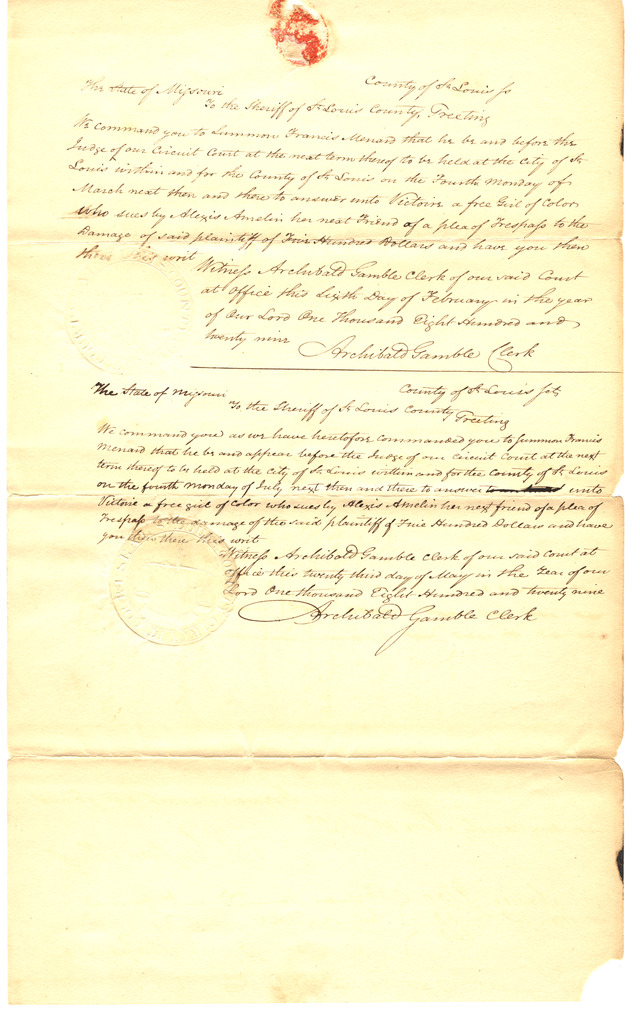 The State of Missouri County of St Louis ss
To the Sheriff of St Louis County, Greeting
We command you to Summon Francis Menard that he be and before the
Judge of our Circuit Court at the next term thereof to be held at the City of St
Louis within and for the County of St Louis on the Fourth Monday of
March next then and there to answer unto Victoire a free Girl of Color
who sues by Alexis Amelin her next Friend of a plea of Trespass to the
Damage of said plaintiff of Five Hundred Dollars and have you then
there this writ
Witness Archibald Gamble Clerk of our said Court
at Office this Sixth Day of February in the year
of Our Lord One Thousand Eight Hundred and
twenty nine
Archibald Gamble Clerk
The State of Missouri County of St Louis Sct
To the Sheriff of St Louis County Greeting
We command you as we have heretofore commanded you to Summon Francis
Menard that he be and appear before the Judge of our Circuit Court at the next
term thereof to be held at the City of St Louis within and for the County of St Louis
on the fourth monday of July next then and there to answer unto
Victoire a free girl of Color who sues by Alexis Amelin her next friend of a plea of
Trespass to the damage of the said plaintiff of Five Hundred Dollars and have
you then there this writ
Witness Archibald Gamble Clerk of our said Court at
office this twenty third day of May in the Year of our
Lord One thousand Eight Hundred and twenty nine
Archibald Gamble Clerk